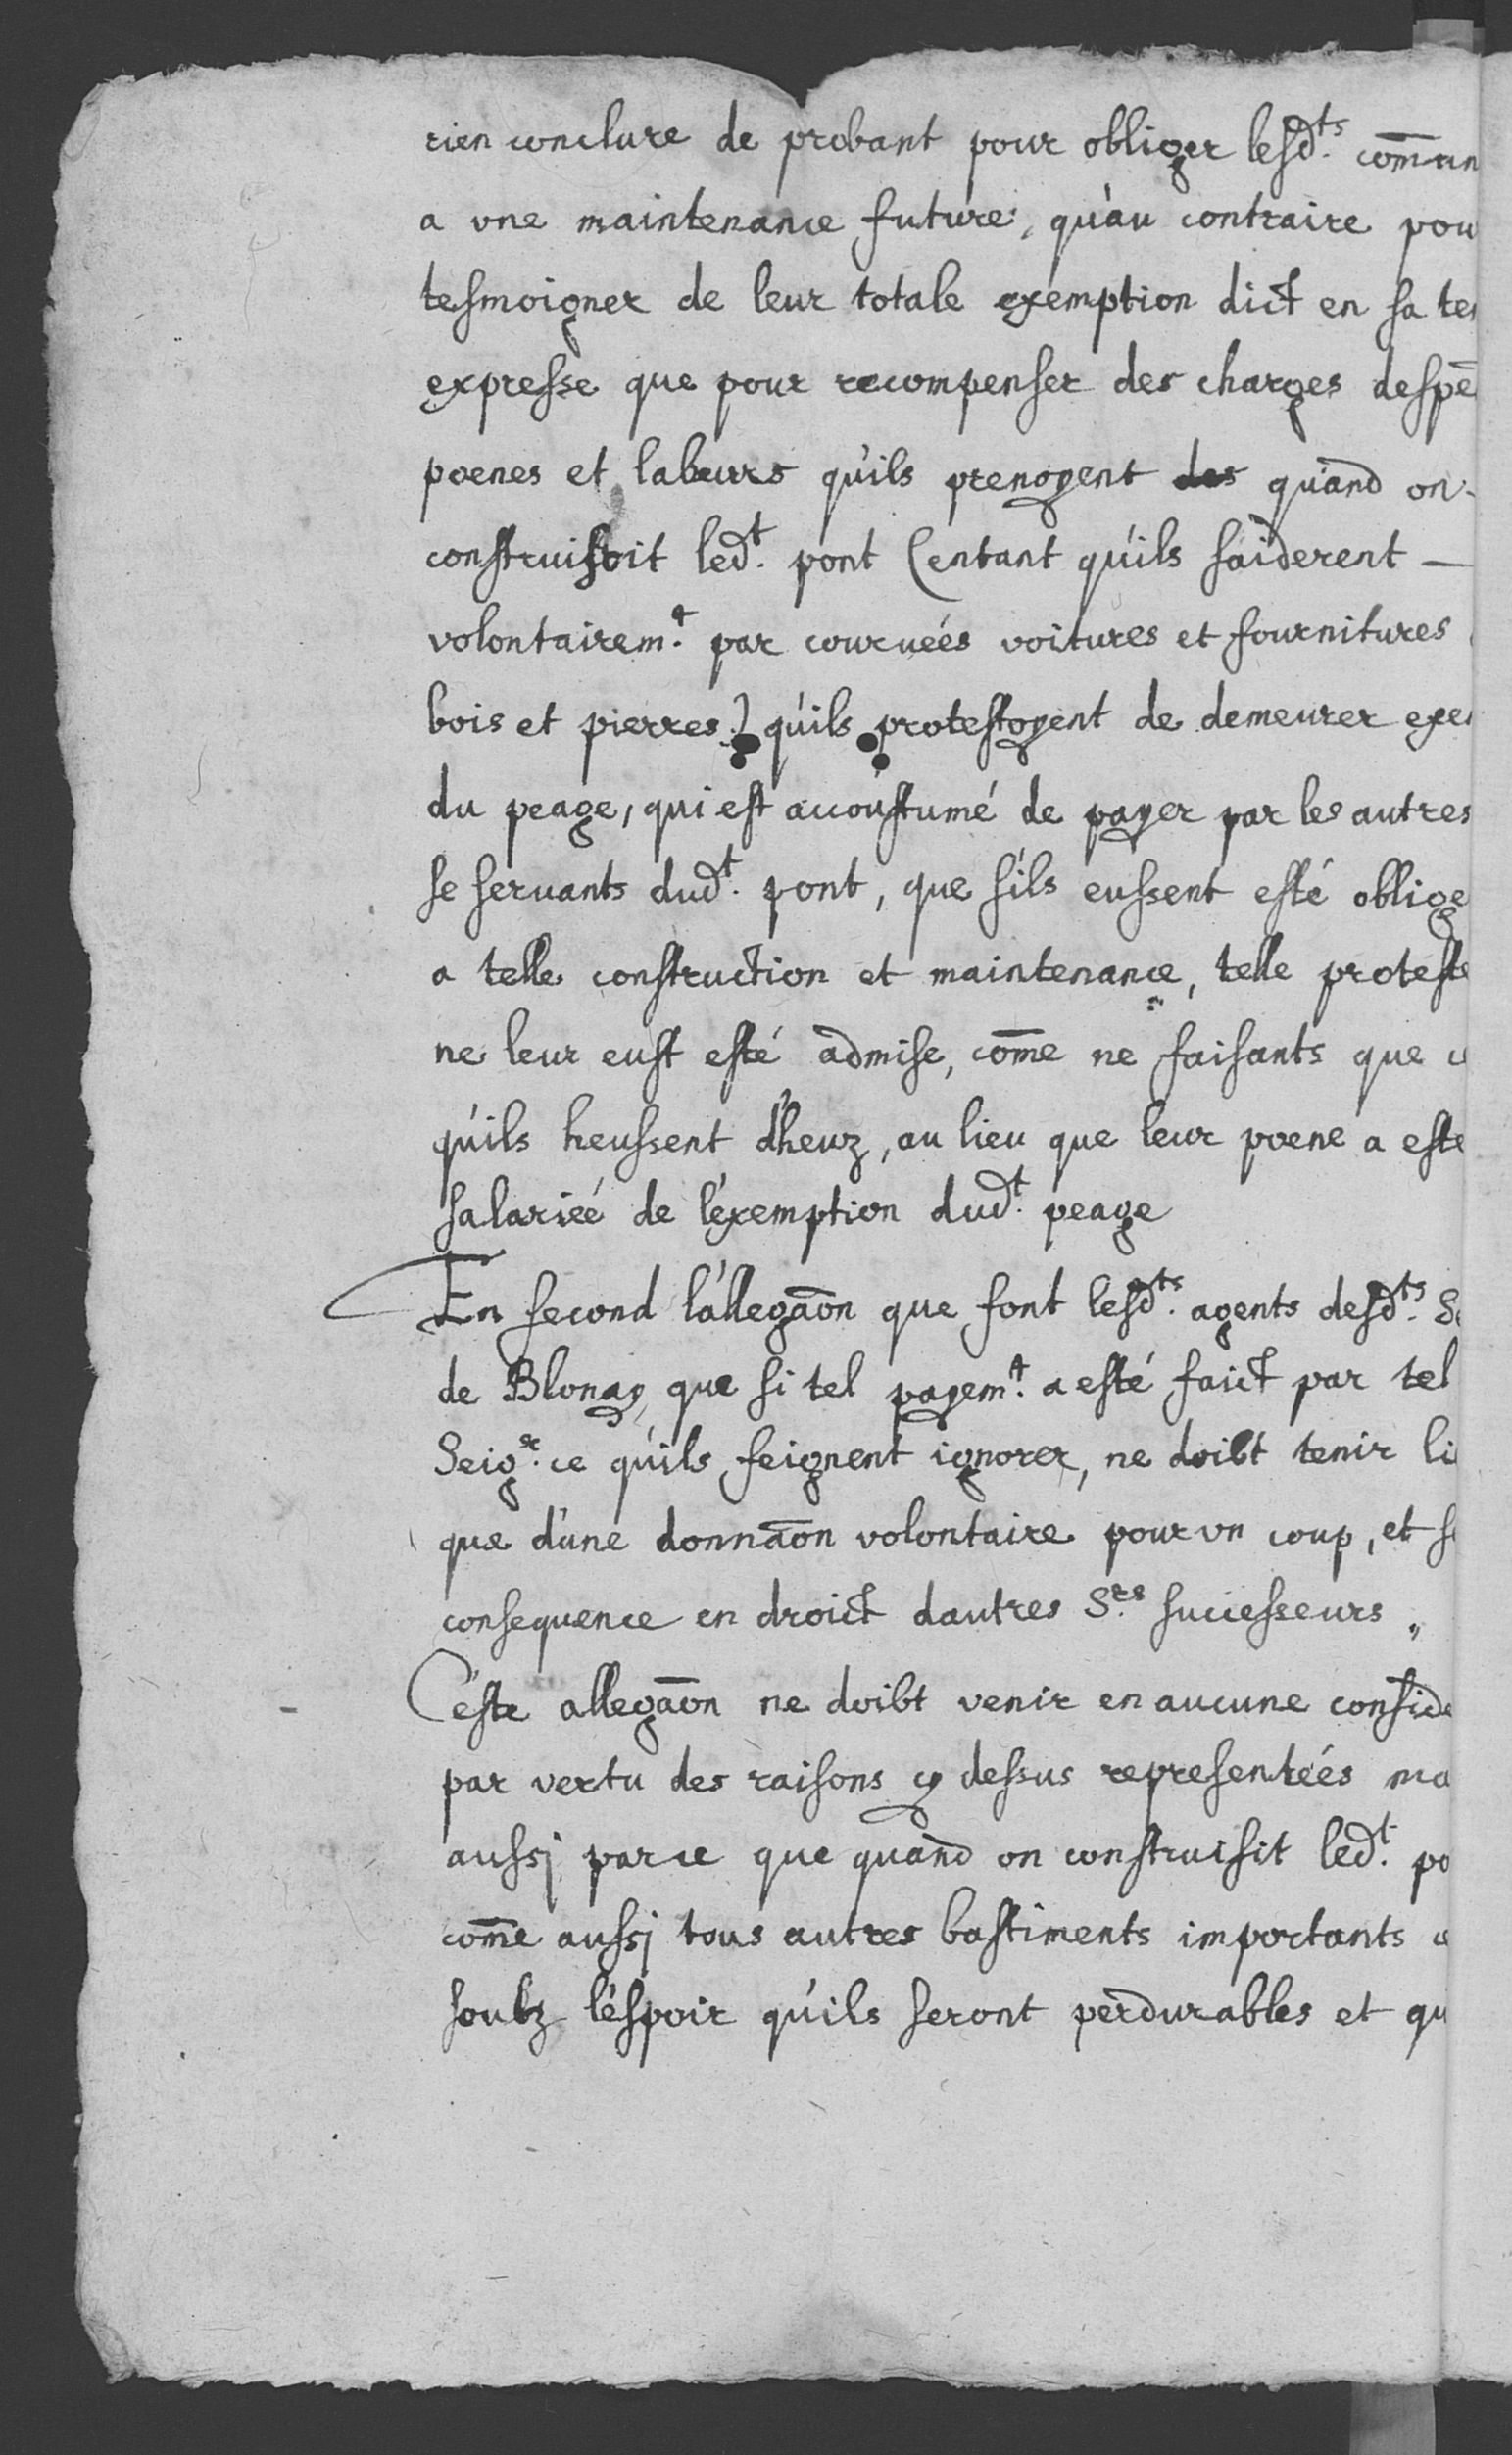 rien conclure de probant pour obliger lesd.ts com̄un
a vne maintenance future, qu'au contraire pou
tesmoigner de leur totale exemption dict en sa te
expresse que pour recompenser des charges despē
poenes et labeurs qu'ils prenoyent des quand on
construisoit led.t pont (entant qu'ils s'aiderent —
volontairem.t par couruées voitures et fournitures
bois et pierres) qu'ils protestoyent de demeurer exe
du peage, qui est accoustumé de payer par les autres
se seruants dud.t pont, que s'ils eussent esté oblige
a telle construction et maintenance, telle proteste
ne leur eust esté admise, com̄e ne faisants que c
qu'ils heussent d'heuz, au lieu que leur poene a esté
salariéé de l'exemption dud.t peage
En second l'allegaōn que font lesd.ts agents desd.ts Se
de Blonay que si tel payem.t a esté faict par tel
Seig.r ce qu'ils feignent ignorer, ne doibt tenir li
que d'une donnaōn volontaire pour vn coup, et s
consequence en droict dautres S.rs successeurs „
Ceste allegaōn ne doibt venir en aucune conside
par vertu des raisons cy dessus representéés ma
aussj parce que quand on construisit led.t po
com̄e aussj tous autres bastiments importants c
soubz l'espoir qu'ils seront perdurables et qu